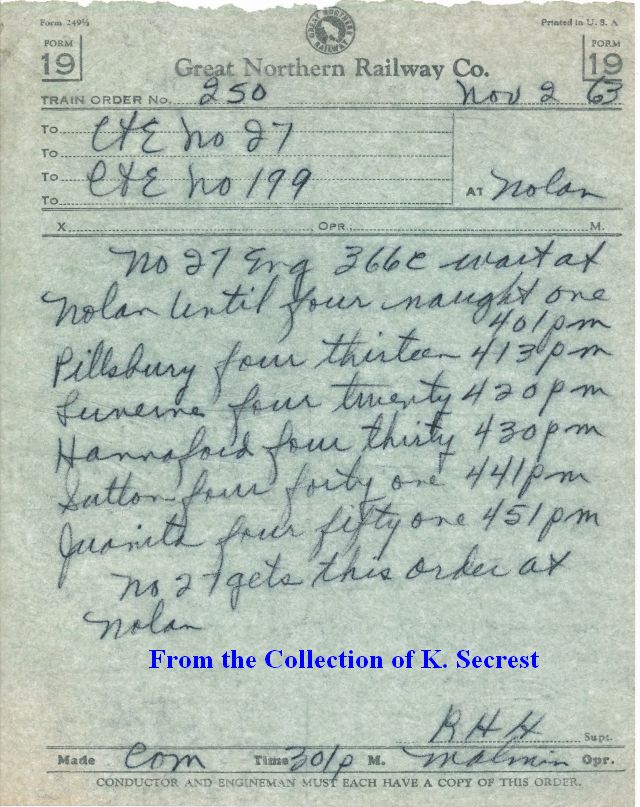 Form 249½
GREAT NORTHERN RAILWAY
Printed in U. S. A
FORM 19
FORM 19
Great Northern Railway Co.
TRAIN ORDER No. 250 Nov 2 63
To C&E No 27
To
To C&E No 199
To
AT Nolan
X OPR. M.
No 27 Eng 366C wait at
Nolan until four naught one
401pm
Pillsbury four thirteen 413pm
Luverne four twenty 420pm
Hannaford four thirty 430pm
Sutton four forty one 441pm
Juanita four fifty one 451pm
No 27 gets this order at
Nolan
From the Collection of K. Secrest
R H H Supt.
Made Com Time 301p M. Malmin Opr.
CONDUCTOR AND ENGINEMAN MUST EACH HAVE A COPY OF THIS ORDER.